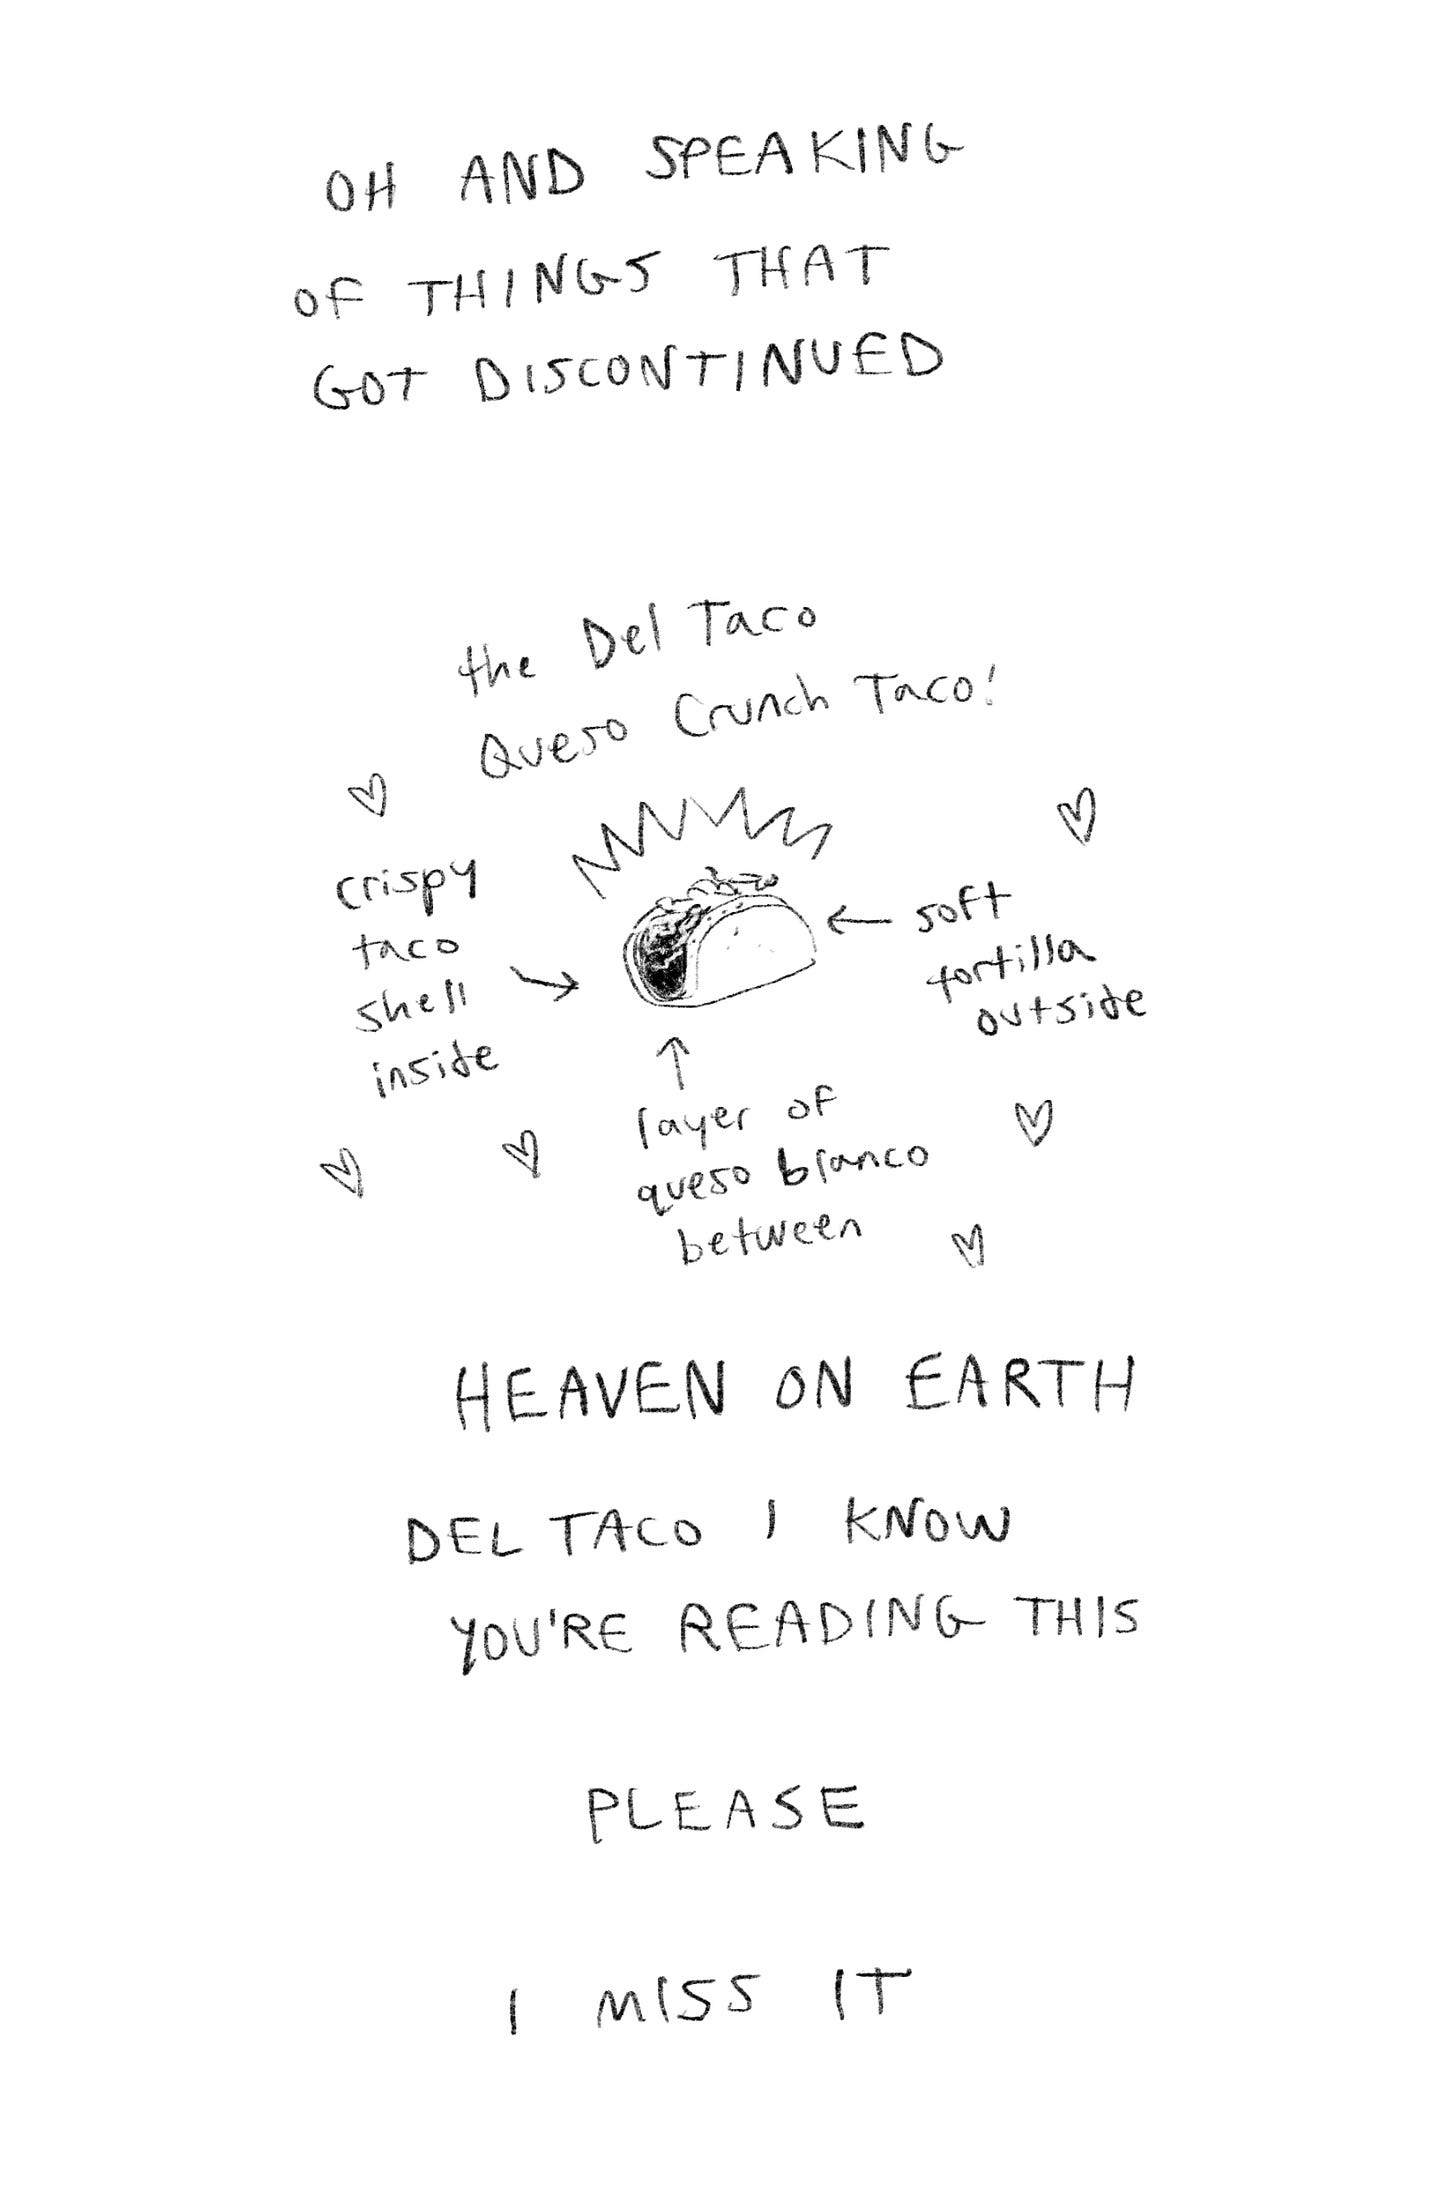 OH AND SPEAKING
OF THINGS THAT
GOT DISCONTINUED
the Del Taco
Queso Crunch Taco!
crispy
taco
shell
inside
soft
tortilla
outside
layer of
queso blanco
between
HEAVEN ON EARTH
DEL TACO I KNOW
YOU'RE READING THIS
PLEASE
I MISS IT